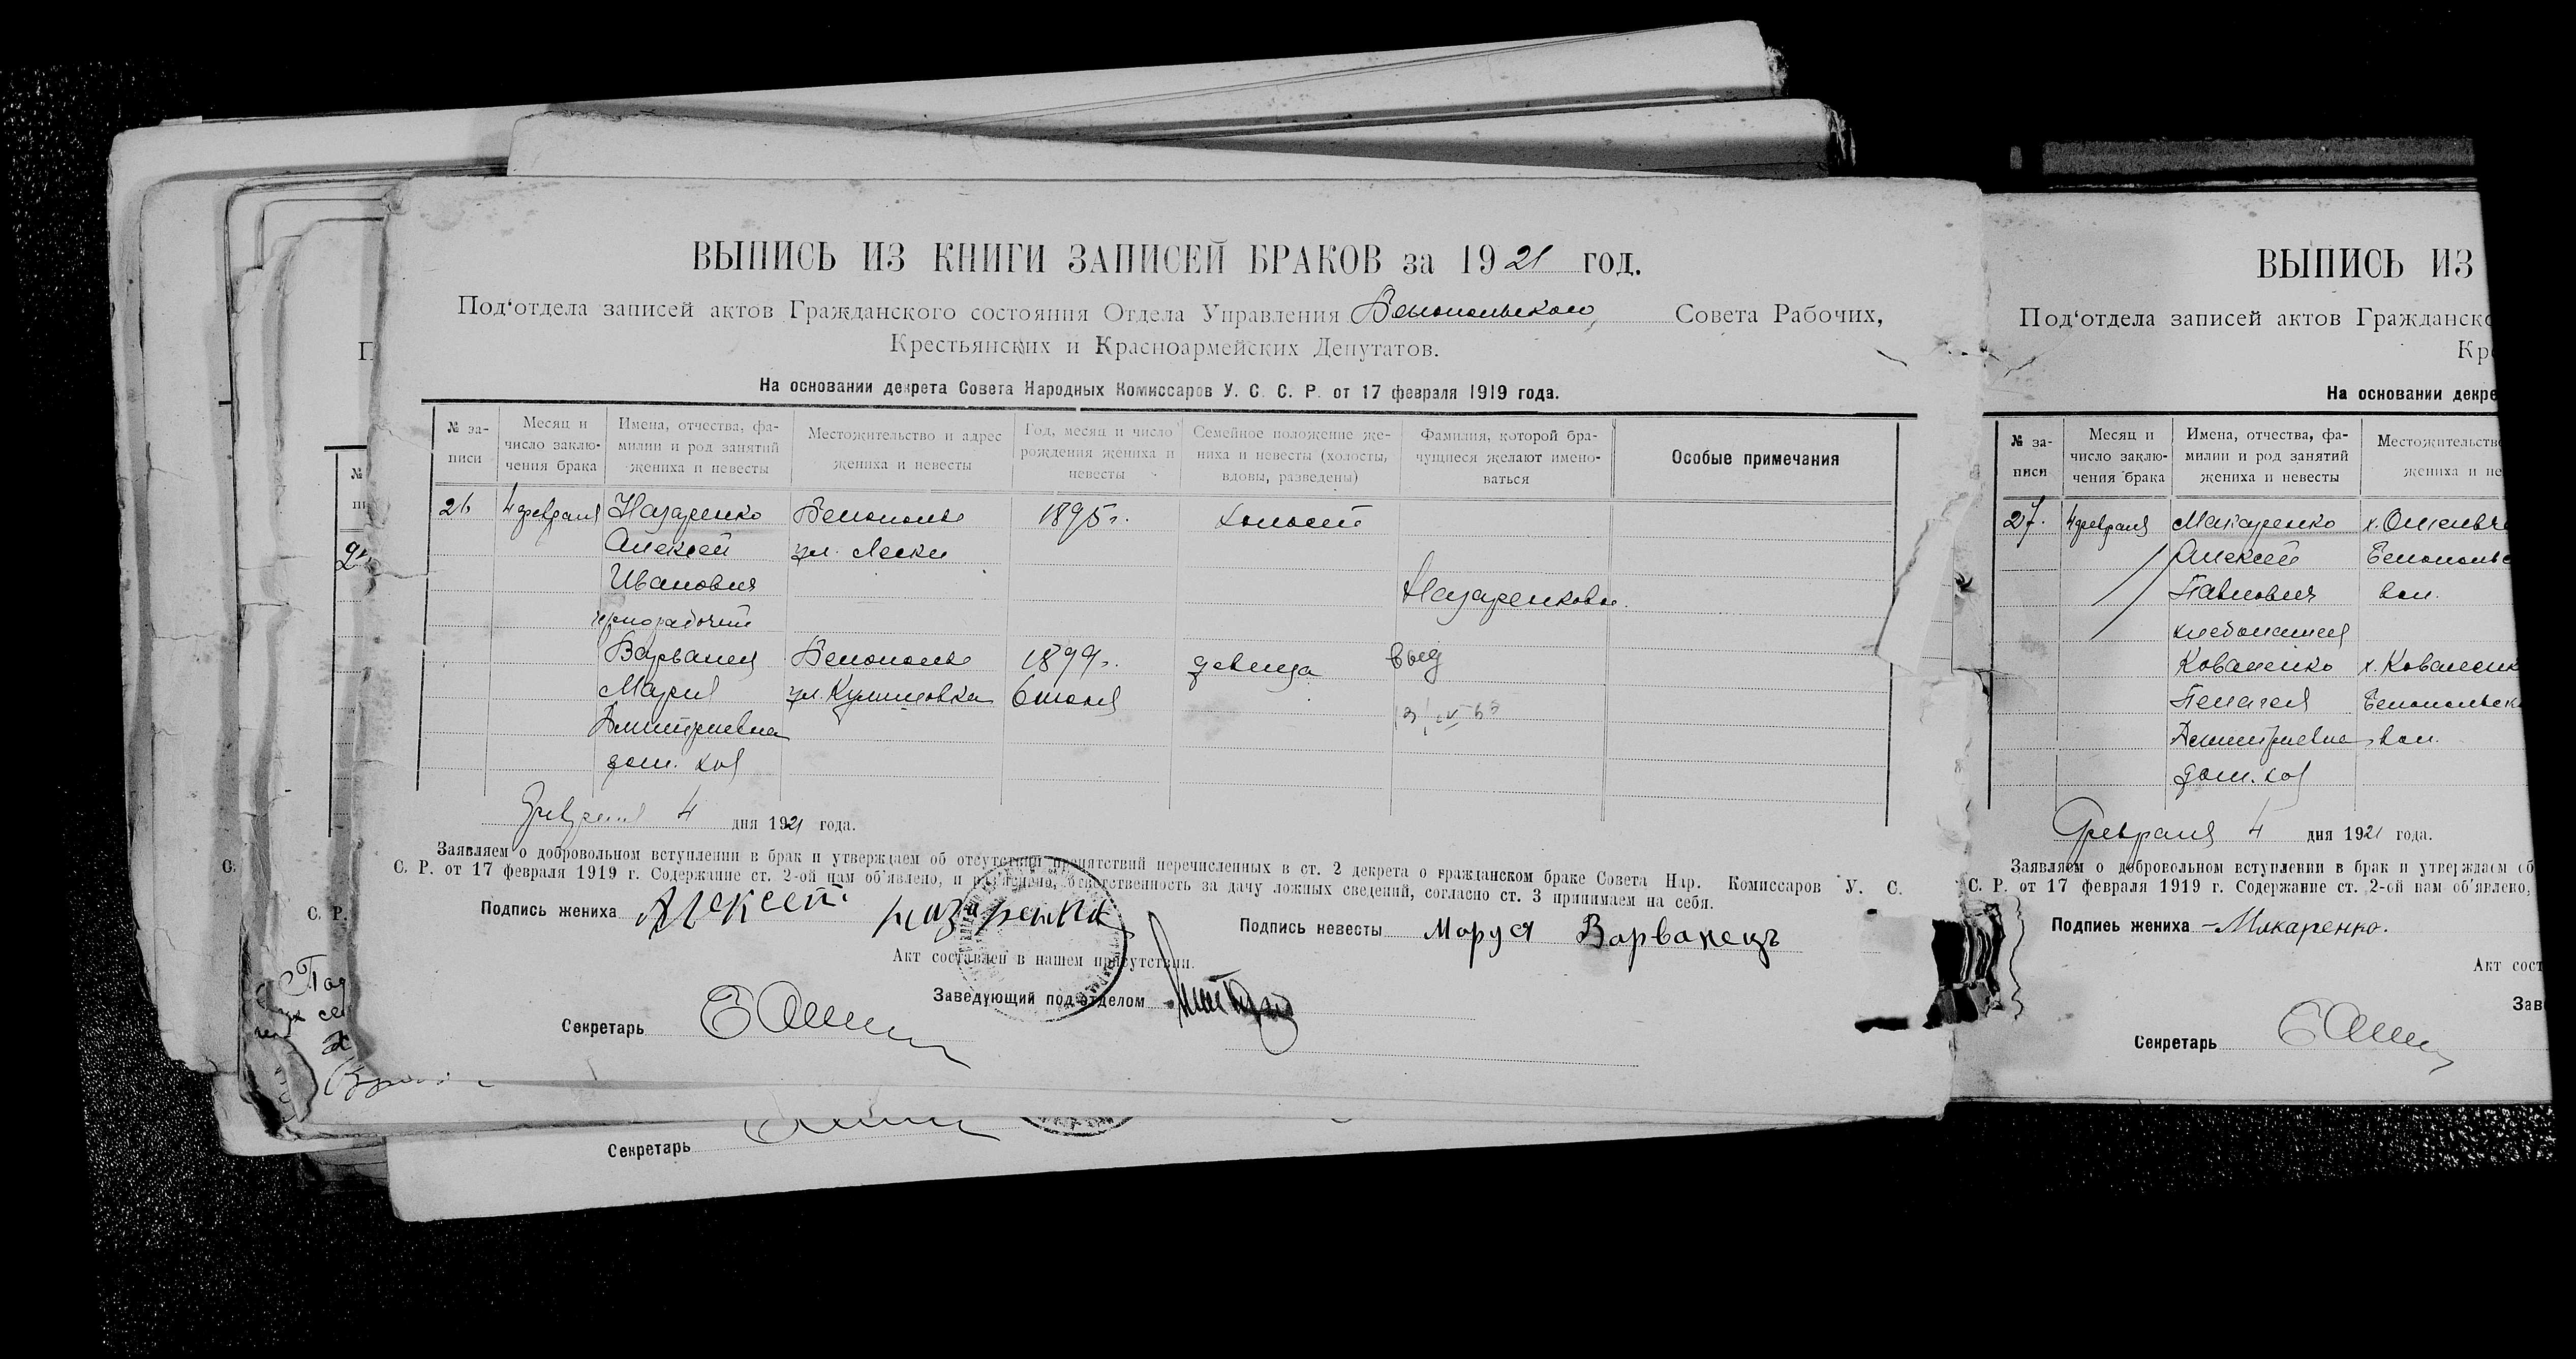 ВЫПИСЬ ИЗ КНИГИ ЗАПИСЕЙ БРАКОВ за 1921 год.
Под‘отдела записей актов Гражданского состояния Отдела Управления Белопольского Совета Рабочих,
Крестьянских и Красноармейских Депутатов.
На основании декрета Совета Народных Комиссаров У. С. С. Р. от 17 февраля 1919 года.
№ за-
писи
Месяц и
число заклю-
чения брака
Имена, отчества, фа-
милии и род занятий
жениха и невесты
Местожительство и адрес
жениха и невесты
Год, месяц и число
рождения жениха и
невесты
Семейное положение же-
ниха и невесты (холосты,
вдовы, разведены)
Фамилия, которой бра-
чущиеся желают имено-
ваться
Особые примечания
26 4 февраля Назаренко Белополье 1895 г. холост
Алексей ул. Лески
Иванович Назаренковы.
чернорабочий
Варванец Белополье 1899 г. девица выд
Мария ул. Кулишовка 6 июля
Дмитриевна
дом. хоз
Февраля 4 дня 1921 года.
Заявляем о добровольном вступлении в брак и утверждаем об отсутствии препятствий перечисленных в ст. 2 декрета о гражданском браке Совета Нар. Комиссаров У. С.
С. Р. от 17 февраля 1919 г. Содержание ст. 2-ой нам об‘явлено, и раз‘яснено, ответственность за дачу ложных сведений, согласно ст. 3 принимаем на себя.
Подпись жениха Алексей Назаренко
Подпись невесты Маруся Варванецъ
Акт составлен в нашем присутствии.
Заведующий под‘отделом
Секретарь
Секретарь
ВЫПИСЬ ИЗ
Под‘отдела записей актов Гражданско
Кре
На основании декре
№ за-
писи
Месяц и
число заклю-
чения брака
Имена, отчества, фа-
милии и род занятий
жениха и невесты
Местожительств
жениха и не
27. 4 февраля Макаренко
Алексей Белопольс
Павлович вол.
хлебопашец
Коваленко х. Коваленк
Пелагея Белопольск
Дмитриевна вол.
дом. хоз
Февраля 4 дня 1921 года.
Заявляем о добровольном вступлении в брак и утверждаем об
С. Р. от 17 февраля 1919 г. Содержание ст. 2-ой нам об‘явлено,
Подпись жениха Макаренко.
Акт сост
Зав
Секретарь